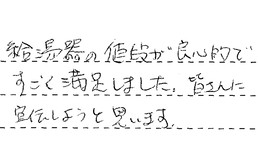 給湯器の値段が良心的で
すごく満足しました。皆さんに
宣伝しようと思います。